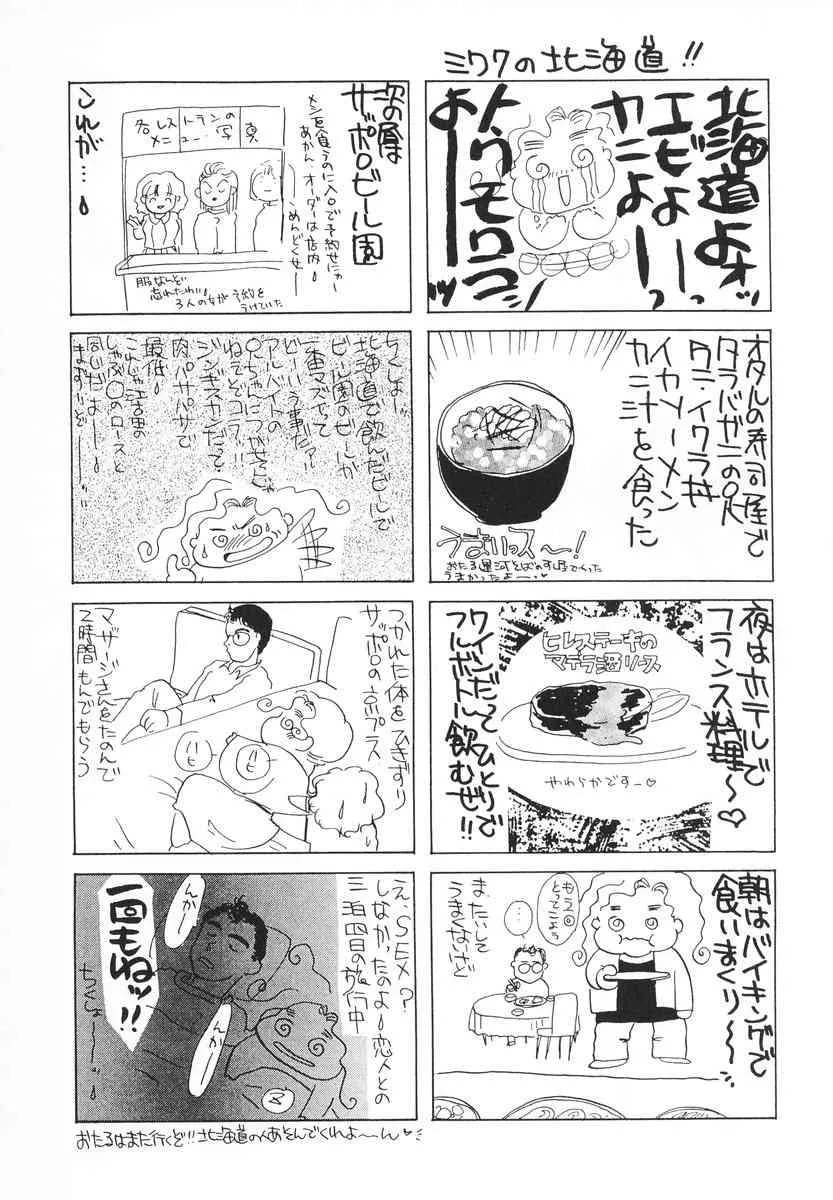 ミワクの北海道!!
北海道よォッ
エビよーっ
カニよーっ
トウモロコシ
よーッ
オタルの寿司屋で
タラバガニの爪
ウニ・イクラ丼
イカソーメン
カニ汁を食った
うまいっス〜!
おたる運河そばのすし屋でくった
うまかったよー♥
夜はホテルで
フランス料理〜♡
ヒレステーキの
マデラ酒ソース
やわらかですー♡
ワインだってひとりで
フルボトル飲むぜ!!
朝はバイキングで
食いまくり〜〜
もう1回
とってこよう
…
ま、たいして
うまくないけど
次の昼は
サッポロビール園
メシを食うのに入口で予約せにゃ
あかん オーダーは店内!
めんどくせー
各レストランの
メニュー・写真
服なんど
忘れたわ!!
3人の女が予約を
うけていた
これが…!
ちくしょー、
北海道で飲んだビールで
一番マズイって
ビール園のビールが
どーいう事だァー
アルバイトの
兄ちゃんにつがせてんじゃ
ねえぞコラ!!
ジンギスカンだって
肉パサパサで
最低!
これじゃ江古田の
しゃぶ〇のロースと
同じだよーー!
まずーいどーー!
つかれた体をひきずり
サッポロの京プラ
マッサージさんをたのんで
2時間もんでもらう
ハヒ
ハヒ
え、SEX?
しなかったのよー恋人との
三泊四日の旅行中
んかー
んかー
一回もねッ!!
ちくしょーーッ!
おたるはまた行くど!!北海道の人あそんでくれよーーん♡